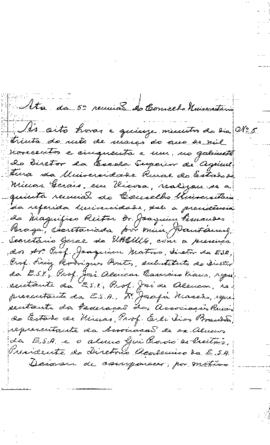 Ata da 5ª reunião do Conselho Universitário
As oito horas e quinze minutos do dia Nº 5
trinta do mês de março do ano de mil
novecentos e cinquenta e um, no gabinete
do Diretor da Escola Superior de Agricul-
tura da Universidade Rural do Estado de
Minas Gerais, em Viçosa, realizou-se a
quinta reunião do Conselho Universitário
da referida Universidade, sob a presidência
do Magnífico Reitor Dr. Joaquim Fernandes
Braga, secretariada por mim,
Secretário Geral da UREMG, com a presença
dos Prof. Joaquim Matoso, diretor da ESA,
Prof. Rodrigues Fontes, substituto do diretor
da E.S.V., Prof. José Alencar, repre-
sentante da E.S.V., Prof. José de Alencar, re-
presentante da E.S.A., Dr. Josafá Macedo, repre-
sentante da Federação das Associações Rurais
do Estado de Minas, Prof. Erly Dias Brandão,
representante da Associação de ex-Alunos
da E.S.A. e o aluno José de Freitas,
Presidente do Diretório Acadêmico da E.S.A.
Deixaram de comparecer, por motivo